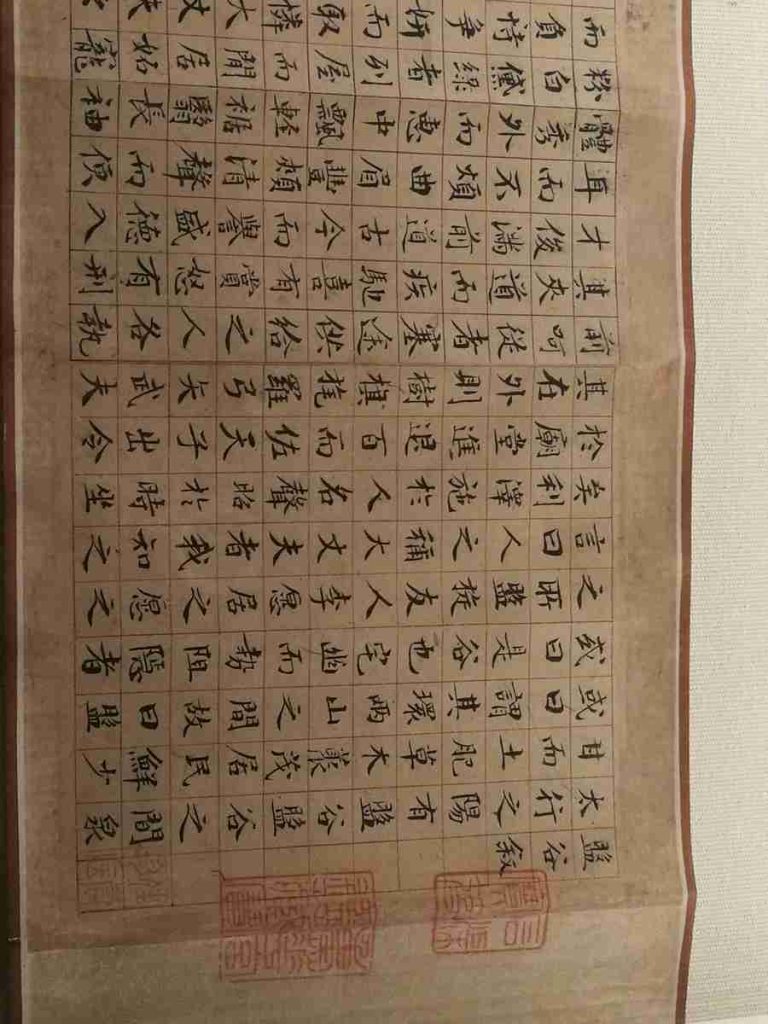 盤谷叙
太行之陽有盤谷盤谷之間泉
甘而土肥草木叢茂居民鮮少
或曰謂其環兩山之間故曰盤
或曰是谷也宅幽而勢阻隱者
之所盤旋友人李愿居之愿之
言曰人之稱大丈夫者我知之
矣利澤施於人名聲昭於時坐
於廟堂進退百而佐天子出令
其在外則樹旗旄羅弓矢武夫
前呵從者塞途供給之人各執
其夾道而疾馳喜有賞怒有刑
才俊滿前道古今而譽盛德入
耳而不煩曲眉豐頰清聲而便
體秀外而惠中飄輕裾翳長袖
粉白黛綠者列屋而閒居妬寵
而負恃爭妍而取憐大丈夫